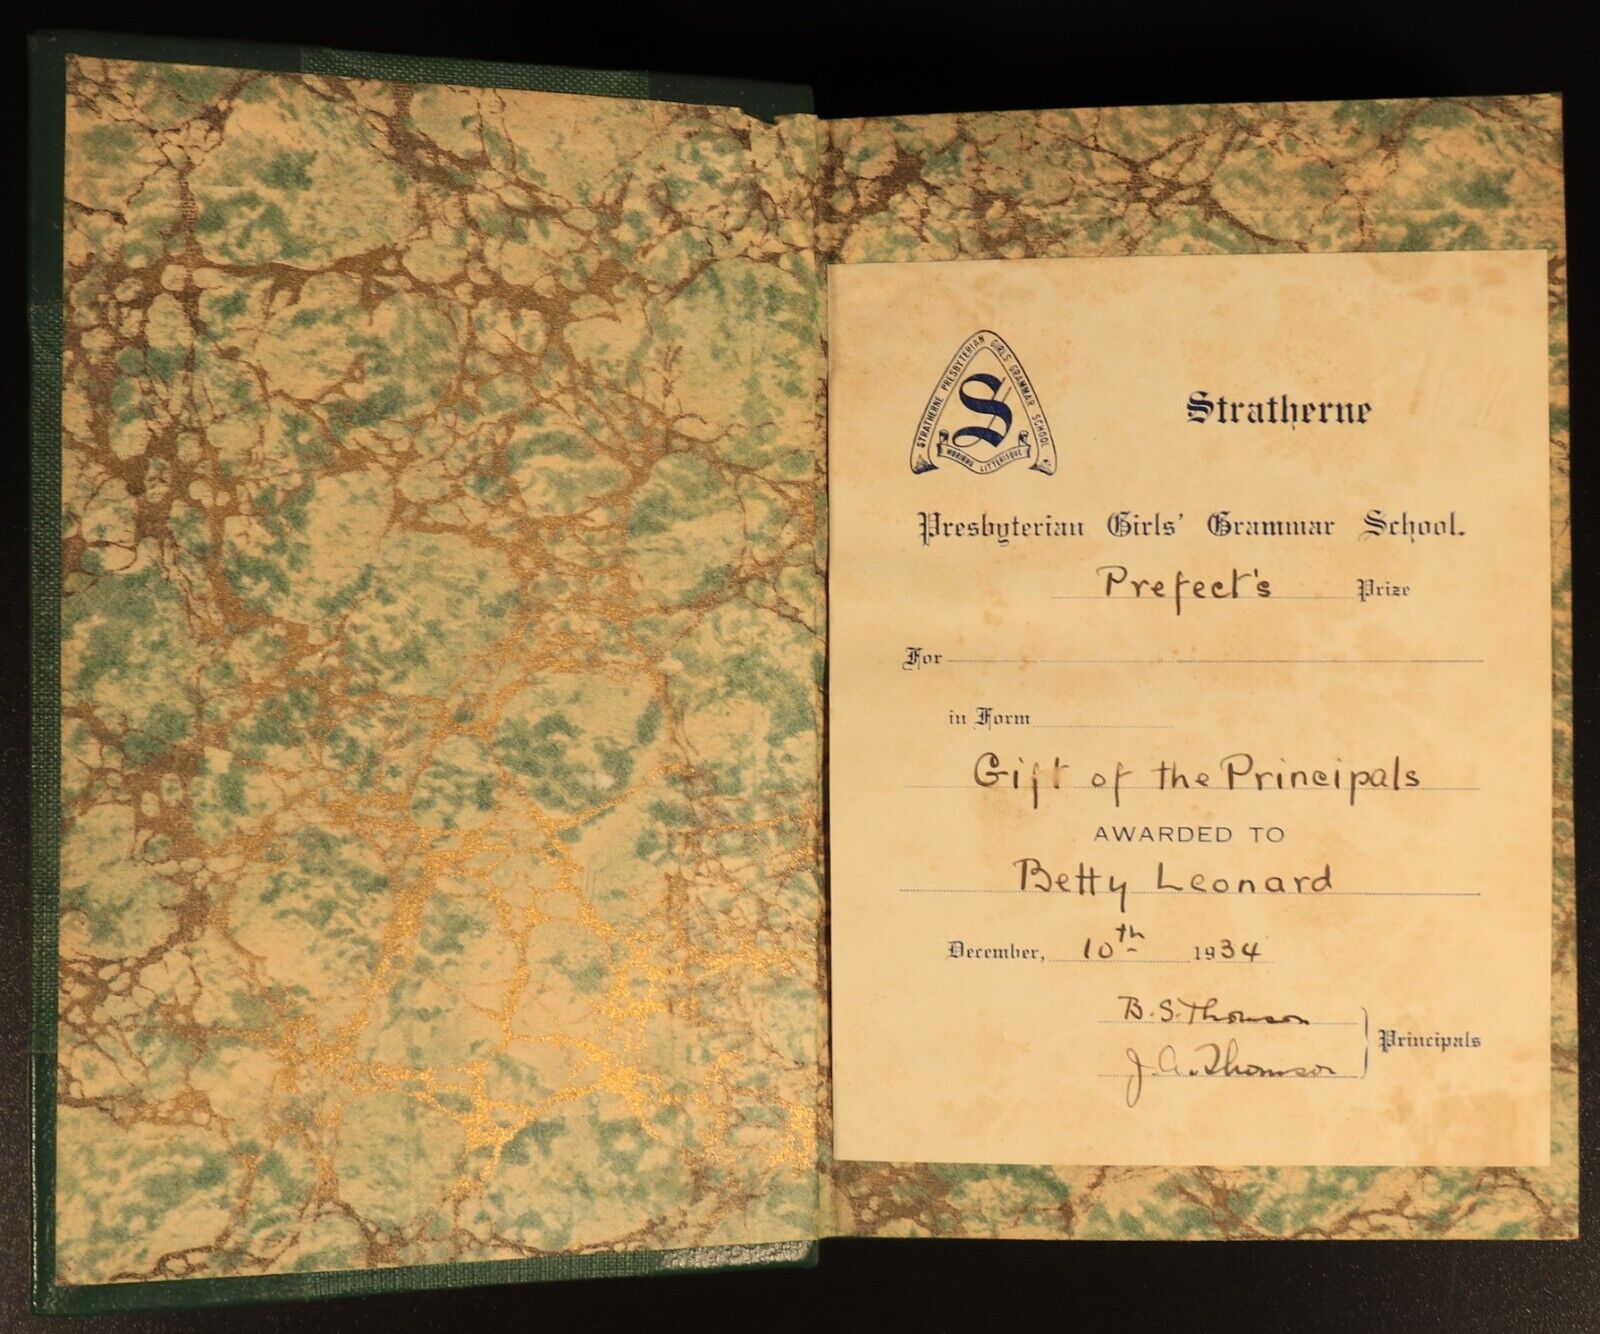 STRATHERNE PRESBYTERIAN GIRLS GRAMMAR SCHOOL
S
MORIBUS LITTERISQUE
Stratherne
Presbyterian Girls' Grammar School.
Prefect's Prize
For
in Form
Gift of the Principals
AWARDED TO
Betty Leonard
December, 10th 1934
B. S. Thomson
J. A. Thomson
Principals